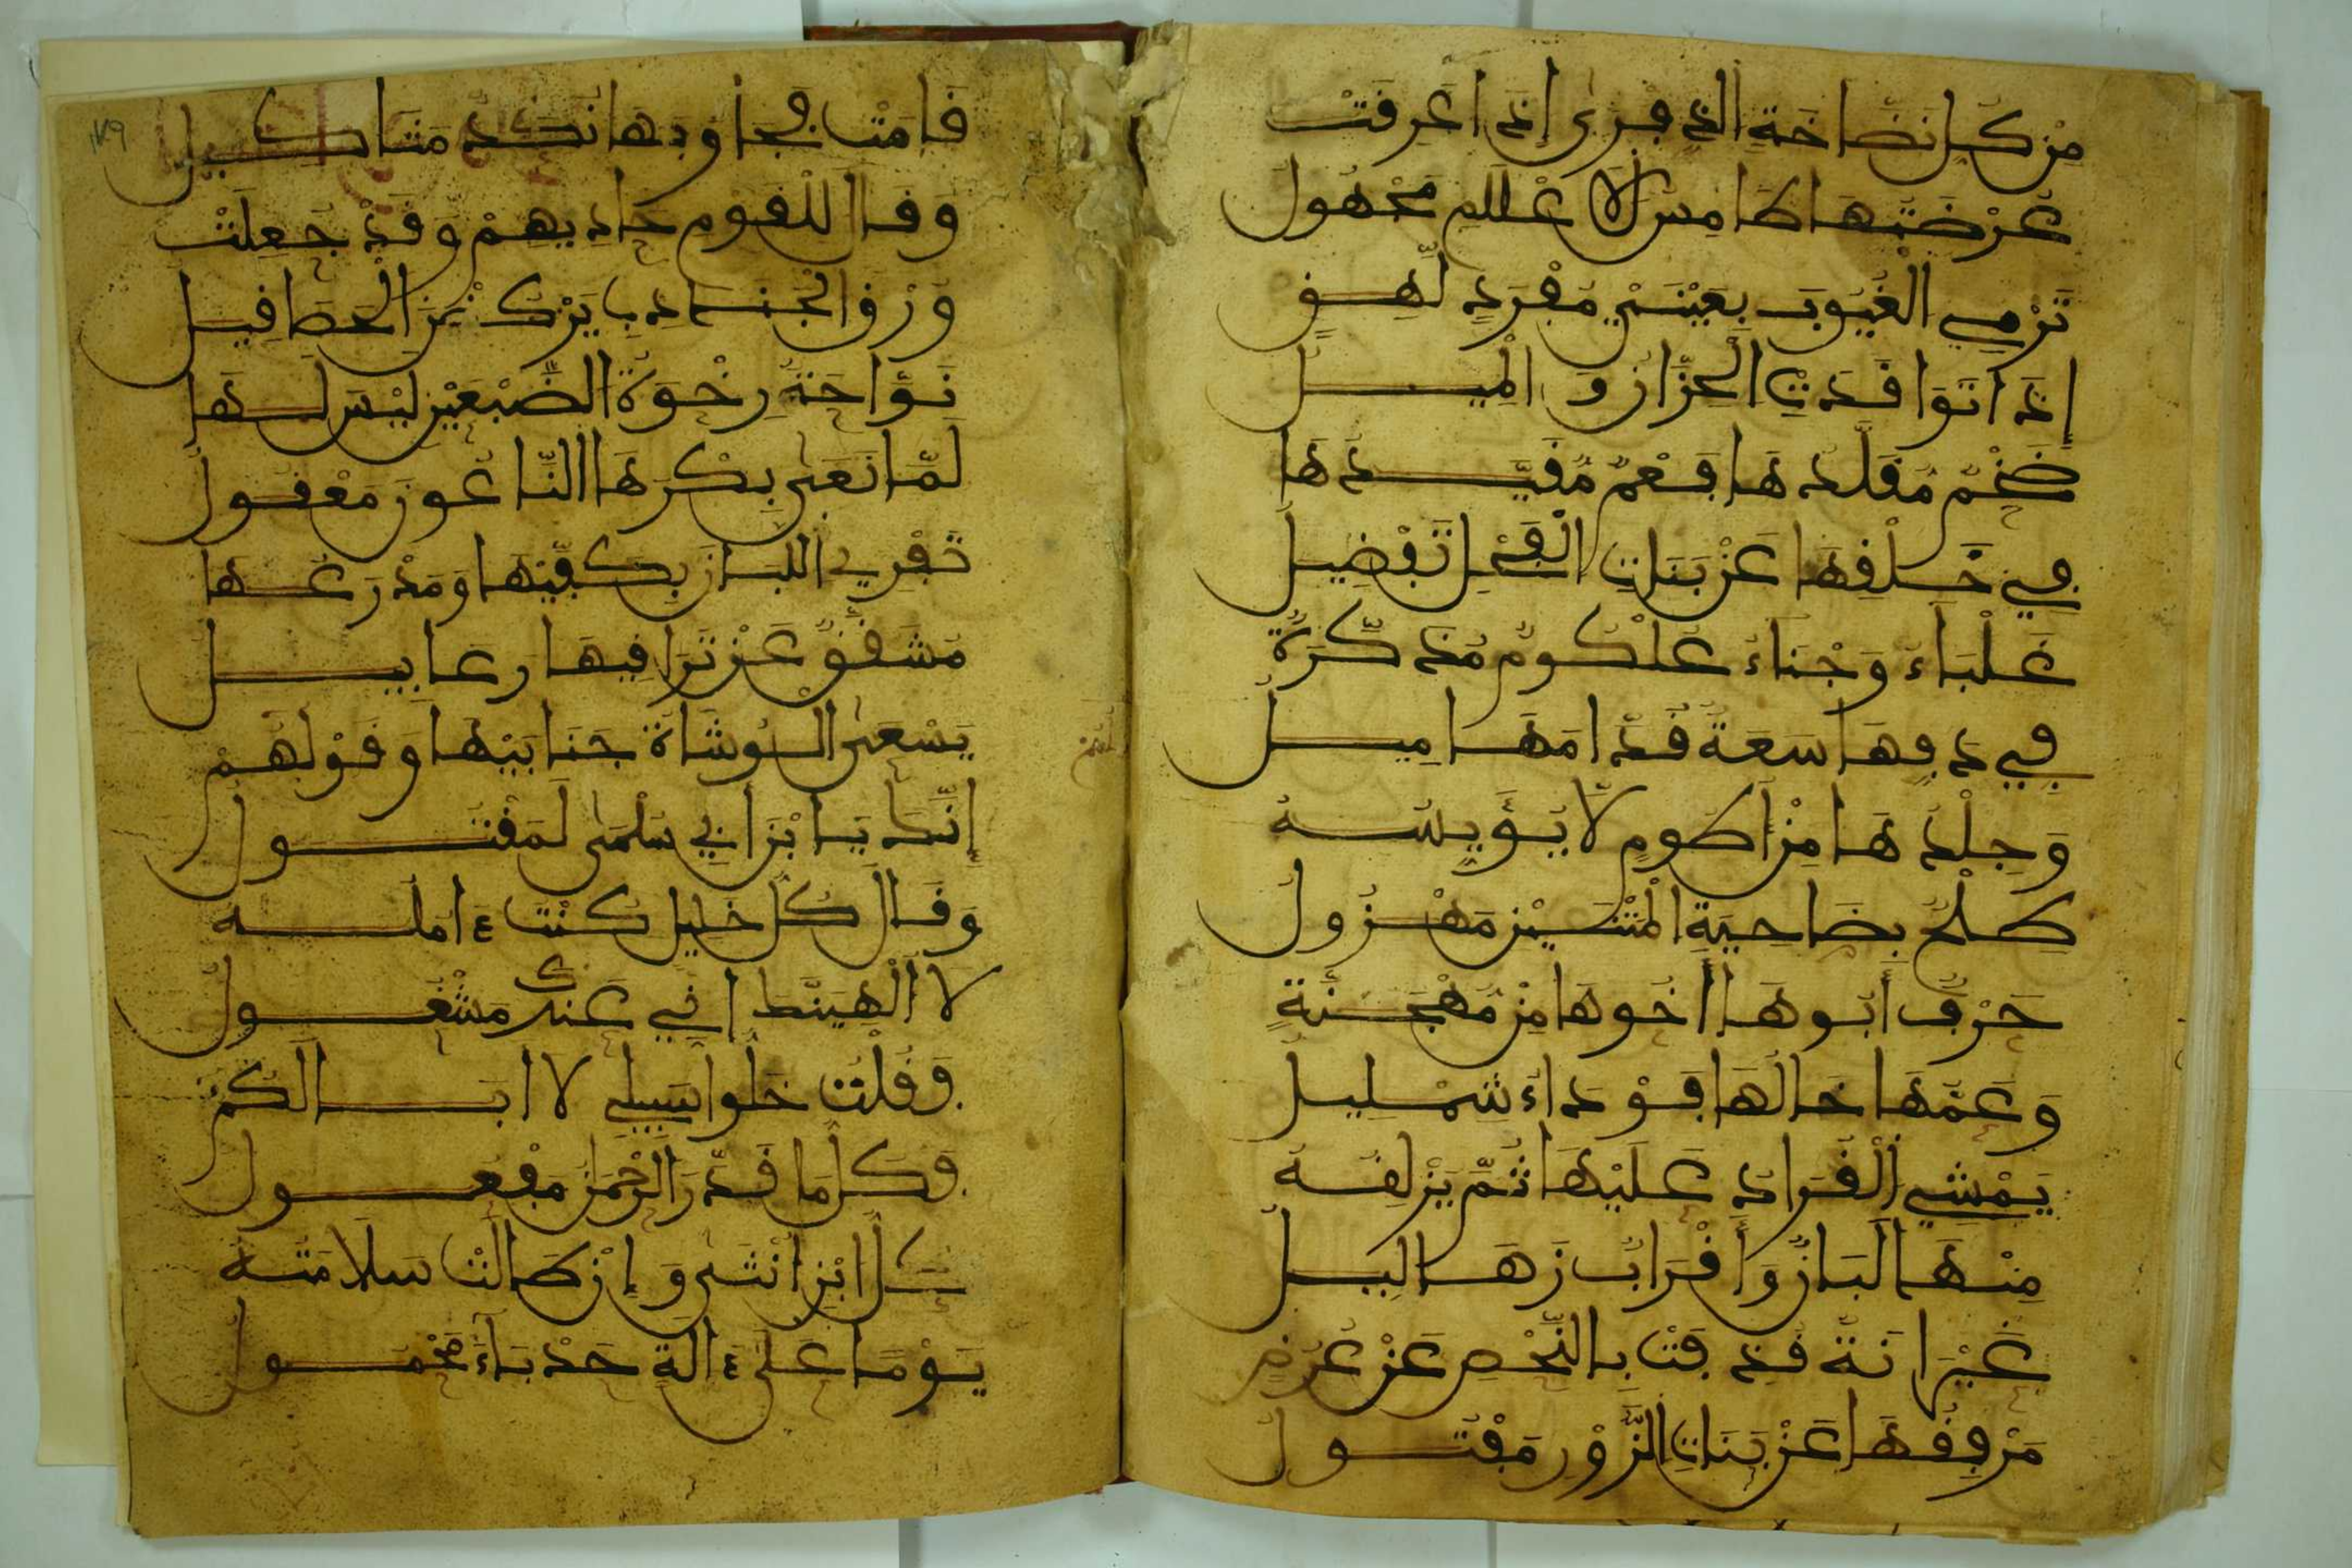 مِن كُلِّ نَضَّاخَةِ الذِّفْرَى إِذَا عَرِقَتْ
عُرْضَتُهَا طَامِسُ الأَعْلَامِ مَجْهُولُ
تَرْمِي الْغُيُوبَ بِعَيْنَيْ مُفْرَدٍ لَهِقٍ
إِذَا تَوَاقَدَتِ الْحِزَّانُ وَالْمِيلُ
ضَخْمٌ مُقَلَّدُهَا فَعْمٌ مُقَيَّدُهَا
فِي خَلْقِهَا عَنْ بَنَاتِ الْفَحْلِ تَفْضِيلُ
غَلْبَاءُ وَجْنَاءُ عُلْكُومٌ مُذَكَّرَةٌ
فِي دَفِّهَا سَعَةٌ قُدَّامَهَا مِيلُ
وَجِلْدُهَا مِنْ أَطُومٍ لَا يُؤَيِّسُهُ
طِلْحٌ بِضَاحِيَةِ الْمَتْنَيْنِ مَهْزُولُ
حَرْفٌ أَبُوهَا أَخُوهَا مِنْ مُهَجَّنَةٍ
وَعَمُّهَا خَالُهَا قَوْدَاءُ شِمْلِيلُ
يَمْشِي الْقُرَادُ عَلَيْهَا ثُمَّ يُزْلِقُهُ
مِنْهَا لَبَانٌ وَأَقْرَابٌ زَهَالِيلُ
عَيْرَانَةٌ قُذِفَتْ بِالنَّحْضِ عَنْ عُرُضٍ
مَرْفِقُهَا عَنْ بَنَاتِ الزَّوْرِ مَفْتُولُ
قَامَتْ فَجَاوَبَهَا نُكْدٌ مَثَاكِيلُ
وَقَالَ لِلْقَوْمِ حَادِيهِمْ وَقَدْ جَعَلَتْ
وُرْقُ الْجَنَادِبِ يَرْكُضْنَ الْحَصَا قِيلُ
نَوَّاحَةٌ رِخْوَةُ الضَّبْعَيْنِ لَيْسَ لَهَا
لَمَّا نَعَى بِكْرَهَا النَّاعُونَ مَعْقُولُ
تَفْرِي اللَّبَانَ بِكَفَّيْهَا وَمِدْرَعُهَا
مُشَقَّقٌ عَنْ تَرَاقِيهَا رَعَابِيلُ
يَسْعَى الْوُشَاةُ جَنَابَيْهَا وَقَوْلُهُمْ
إِنَّكَ يَا ابْنَ أَبِي سُلْمَى لَمَقْتُولُ
وَقَالَ كُلُّ خَلِيلٍ كُنْتُ ءَامُلُهُ
لَا أُلْهِيَنَّكَ إِنِّي عَنْكَ مَشْغُولُ
فَقُلْتُ خَلُّوا سَبِيلِي لَا أَبَا لَكُمُ
فَكُلُّ مَا قَدَّرَ الرَّحْمَنُ مَفْعُولُ
كُلُّ ابْنِ أُنْثَى وَإِنْ طَالَتْ سَلَامَتُهُ
يَوْمًا عَلَى ءَالَةٍ حَدْبَاءَ مَحْمُولُ